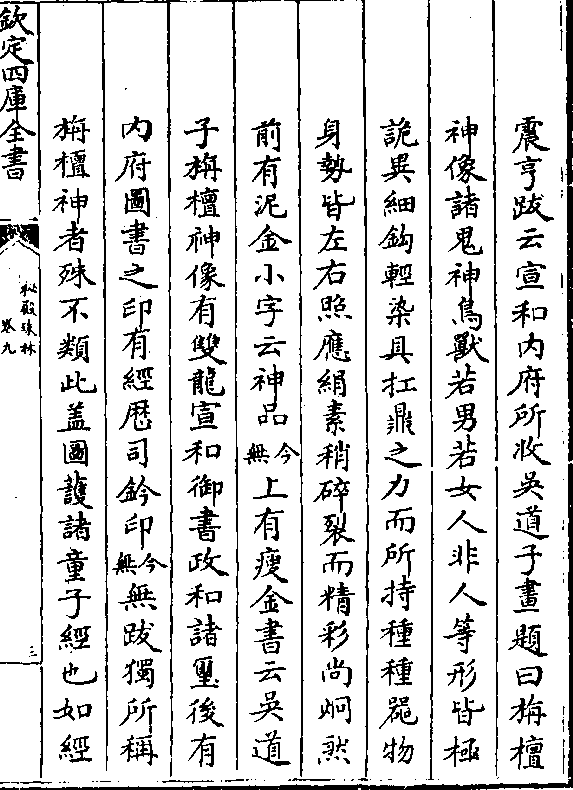 震亨跋云宣和内府所收吳道子畫題曰栴檀
神像諸鬼神鳥獸若男若女人非人等形皆極
詭異細鈎輕染具扛鼎之力而所持種種器物
身勢皆左右照應絹素稍碎裂而精彩尚炯然
前有泥金小字云神品今無上有瘦金書云吳道
子栴檀神像有雙龍宣和御書政和諸璽後有
内府圖書之印有經歴司鈐印今無無跋獨所稱
栴檀神者殊不類此盖圖護諸童子經也如經
欽定四庫全書
秘殿珠林
卷九
三